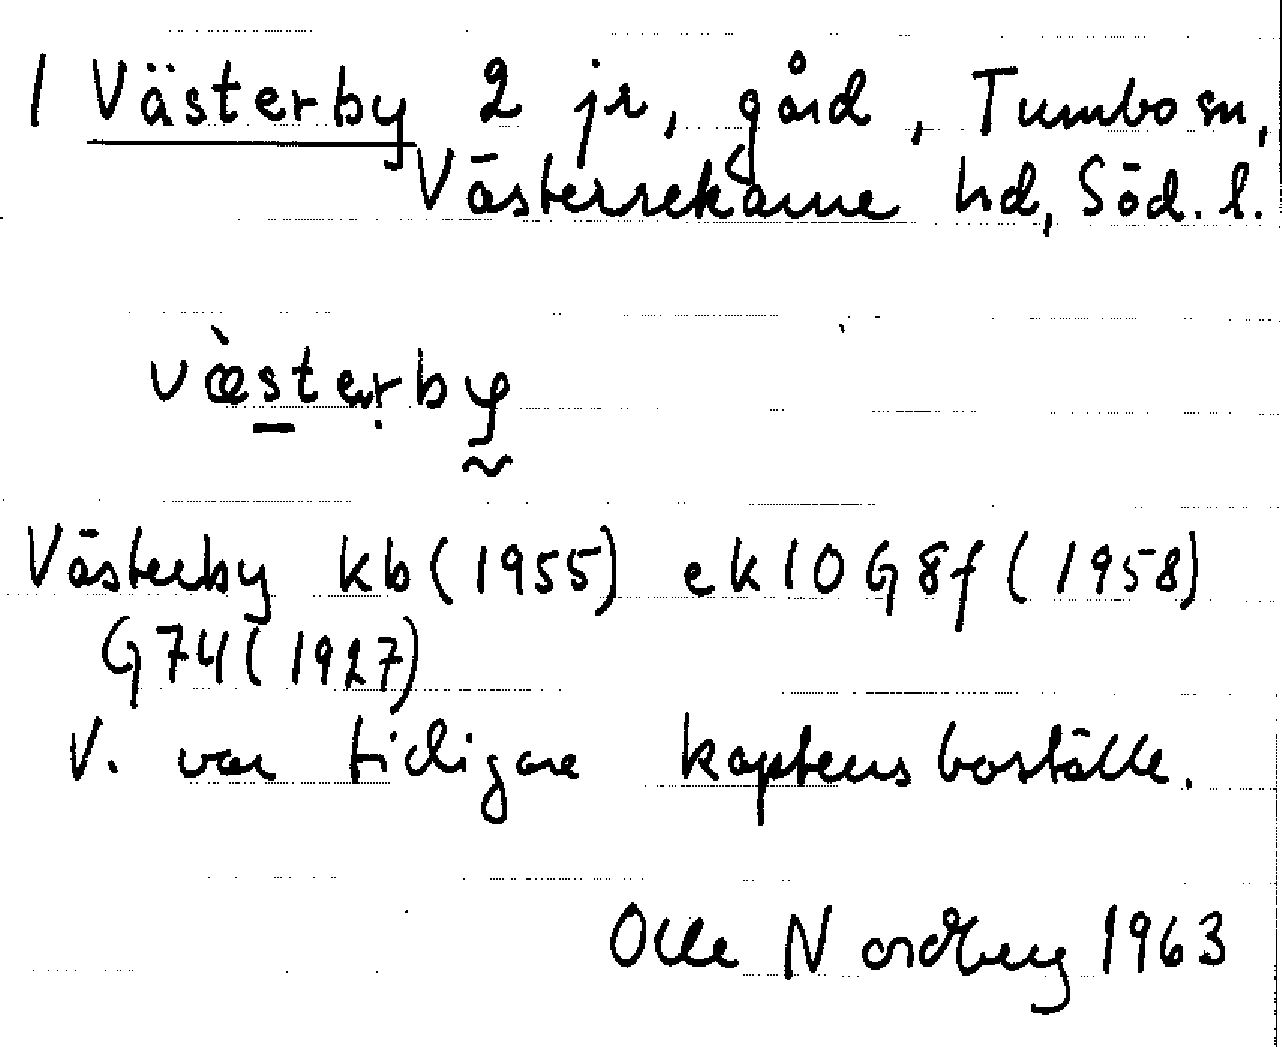 1 Västerby 2 jr, gård, Tumbo sn,
Västerrekarne hd, Söd. l.
væ̀sterby
Västerby kb (1955) ek 10G8f (1958)
G74 (1927)
V. var tidigare kaptensboställe.
Olle Nordberg 1963